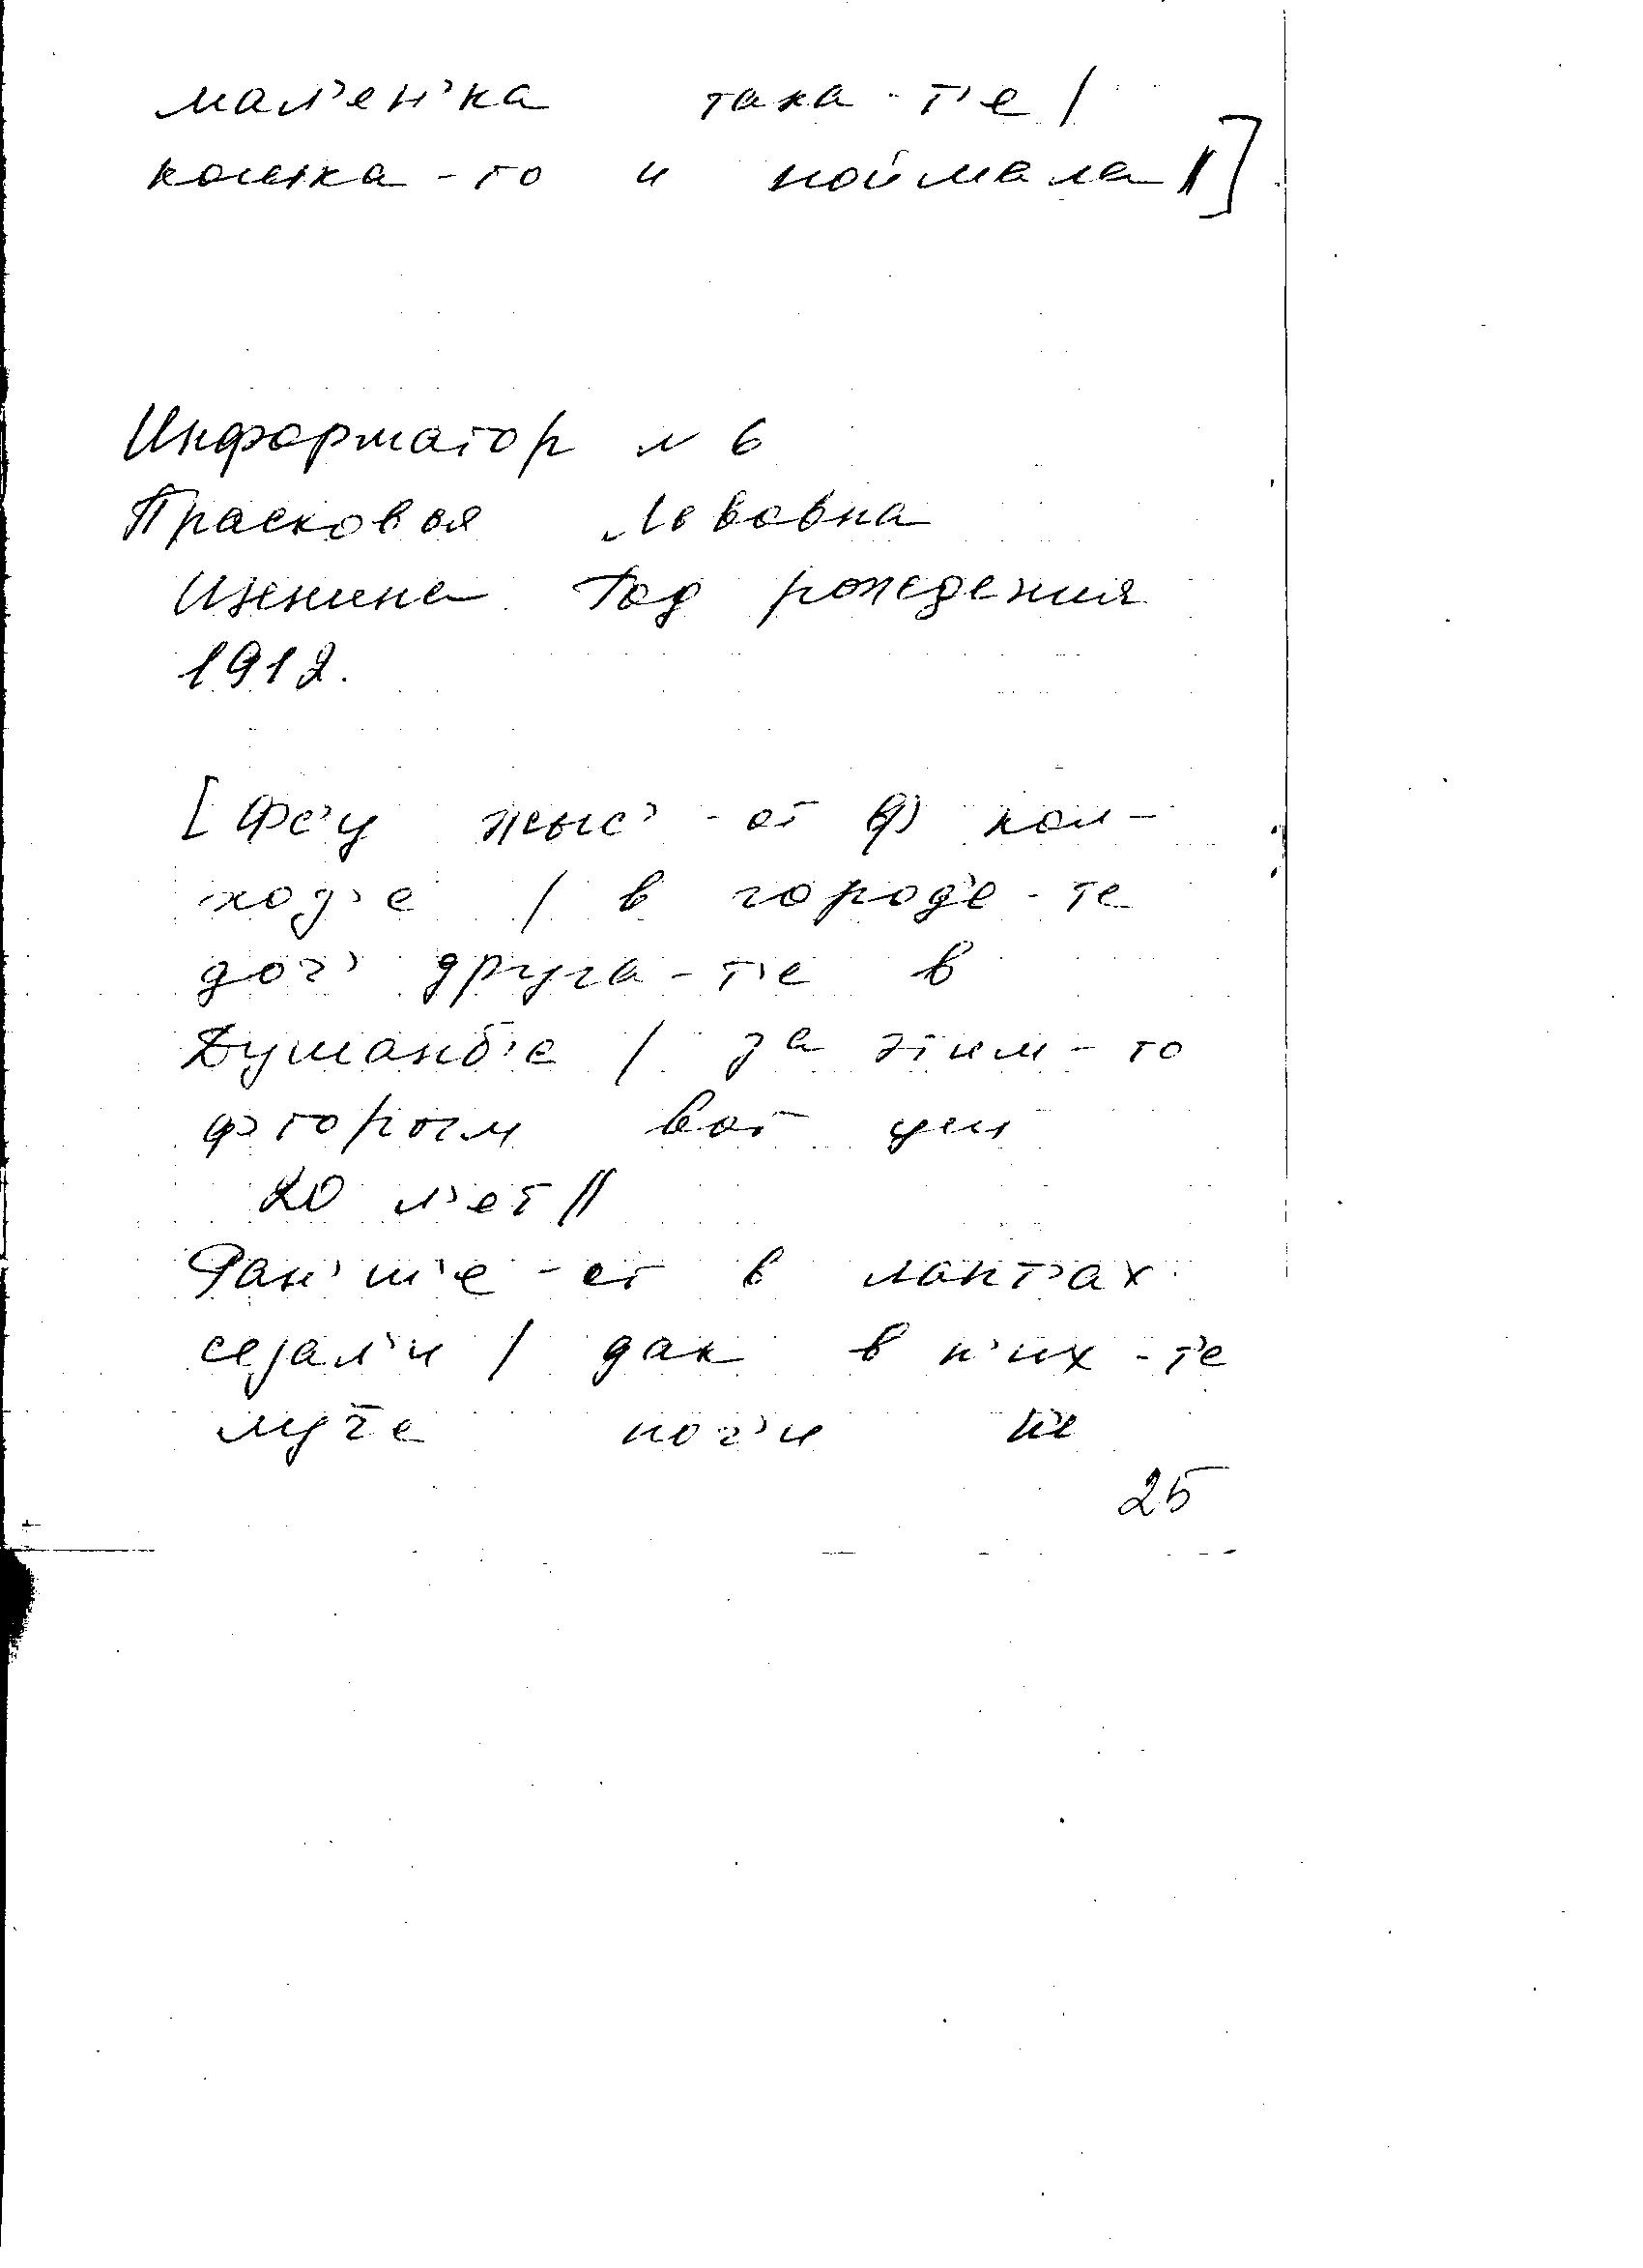 мал'ен'ка така-т'е /
кошка-то и поймала //]
Информатор № 6
Прасковья Львовна
Год рождения
1912.
[Фс'у жыс'-от ф кол-
хоз'е / в город'е-те
доч' друга-т'е в
Душанб'е / за этим-то
фторым вот уш
20 л'ет //
Ран'ш'е-от в лапт'ах
сејал'и / дак в н'их-т'е
луче ног'и н'е
25